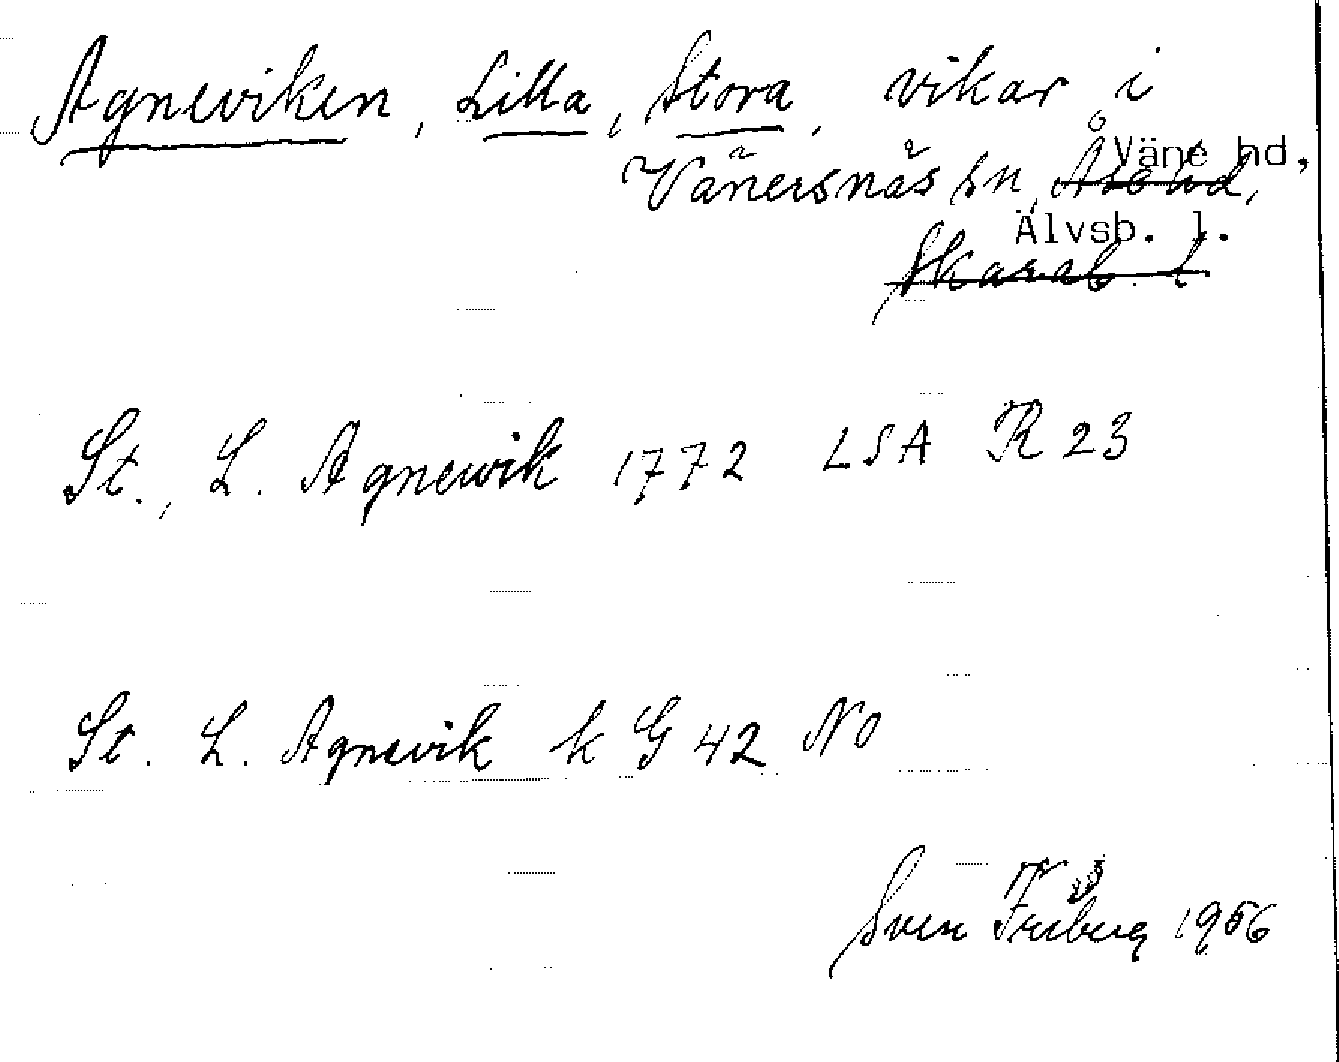 Agneviken, Lilla, Stora, vikar i
Väne hd,
Vänersnäs sn, Åse hd,
Älvsb. l.
Skarab. l.
St., L. Agnewik 1772 LSA R 23
St. L. Agnevik k G 42 NO
Sven Friberg 1956